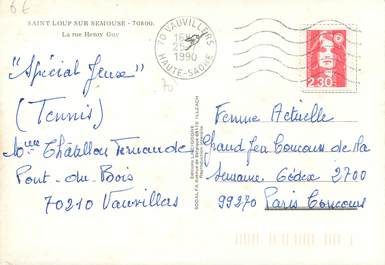 6€
SAINT LOUP SUR SEMOUSE - 70800.
La rue Henry Guy
70 VAUVILLERS
16H
25
1990
HAUTE-SAONE
2,30
70
"Spécial Jeux"
(Tennis)
Mme Châtillon Fernande
Pont-du-Bois
70210 Vauvillers
Femme Actuelle
Grand Jeu Concours de la
Semaine Cédex 2700
99270 Paris Concours